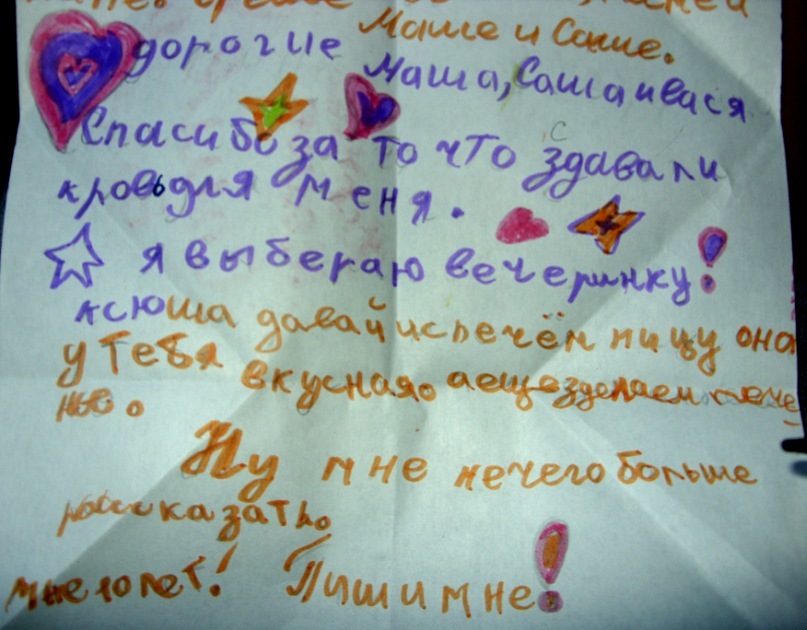 Маше и Саше.
дорогие Маша, Саша и вася
Спасибо за то что здавали
с
кровь для меня.
я выбераю вечеринку!
ксюша давай испечём пицу она
у тебя вкусная. а еще зделаем пече
нье.
Ну мне нечего больше
рассказать.
мне 10 лет! Пиши мне!